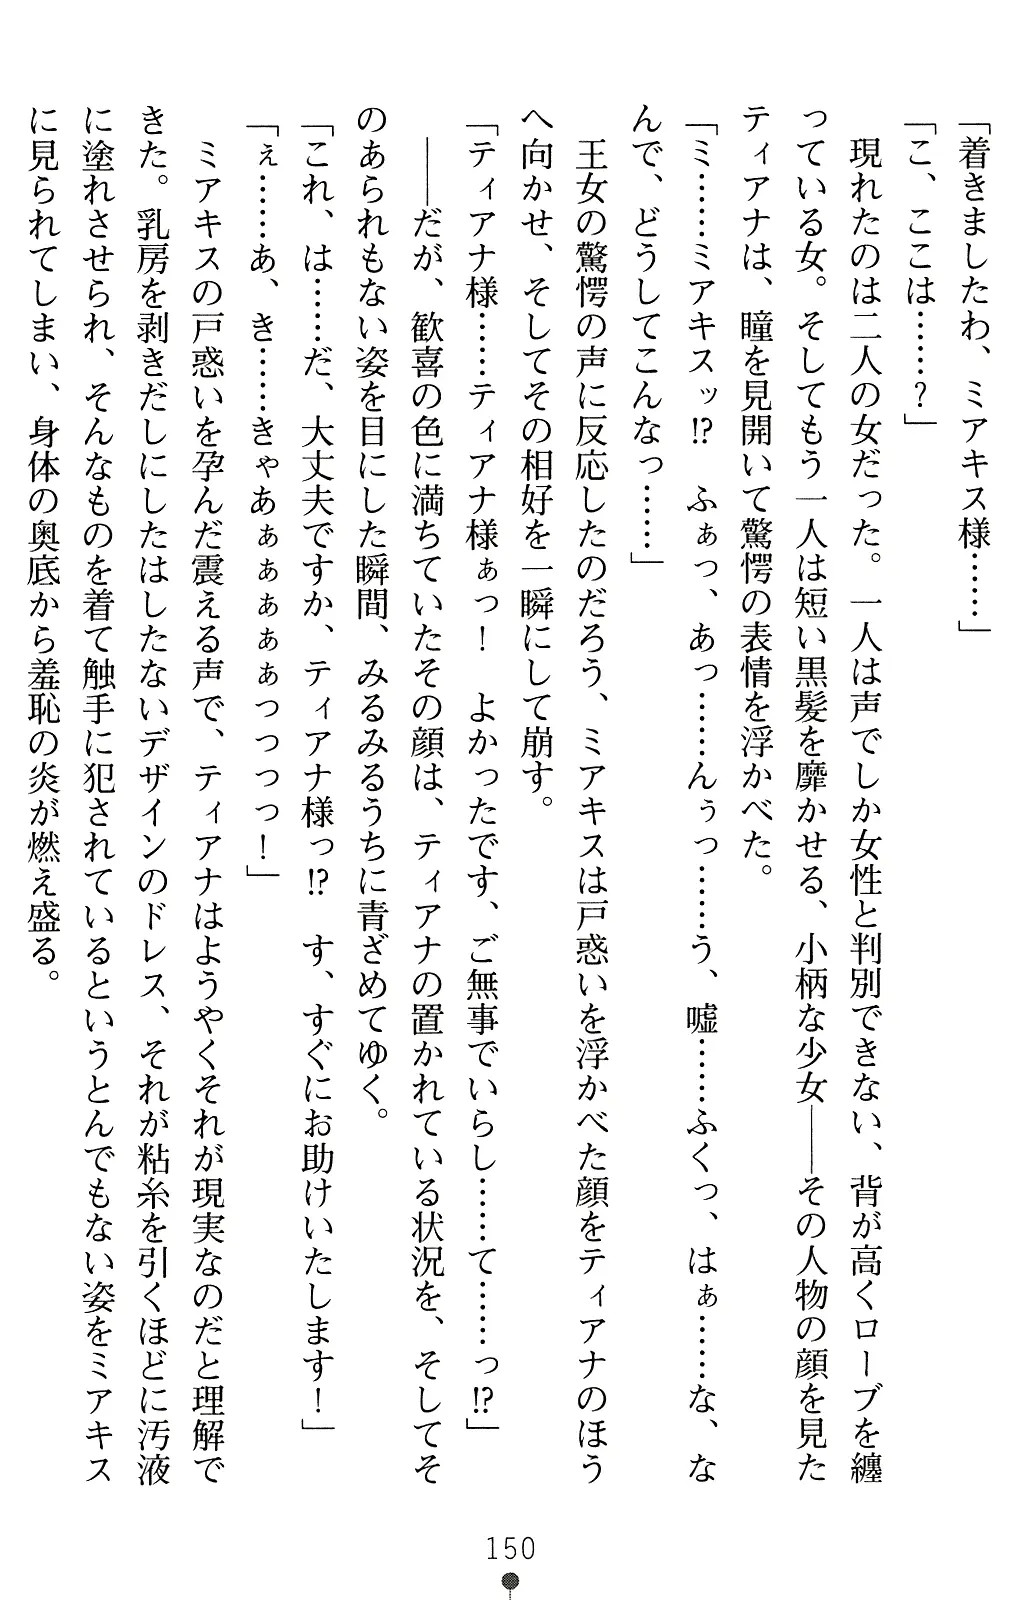 「着きましたわ、ミアキス様……」
「こ、ここは……？」
　現れたのは二人の女だった。一人は声でしか女性と判別できない、背が高くローブを纏
っている女。そしてもう一人は短い黒髪を靡かせる、小柄な少女――その人物の顔を見た
ティアナは、瞳を見開いて驚愕の表情を浮かべた。
「ミ……ミアキスッ!?　ふぁっ、あっ……んぅっ……う、嘘……ふくっ、はぁ……な、な
んで、どうしてこんなっ……」
　王女の驚愕の声に反応したのだろう、ミアキスは戸惑いを浮かべた顔をティアナのほう
へ向かせ、そしてその相好を一瞬にして崩す。
「ティアナ様……ティアナ様ぁっ！　よかったです、ご無事でいらし……て……っ!?」
　――だが、歓喜の色に満ちていたその顔は、ティアナの置かれている状況を、そしてそ
のあられもない姿を目にした瞬間、みるみるうちに青ざめてゆく。
「これ、は……だ、大丈夫ですか、ティアナ様っ!?　す、すぐにお助けいたします！」
「ぇ……あ、き……きゃあぁぁぁぁぁっっっっ！」
　ミアキスの戸惑いを孕んだ震える声で、ティアナはようやくそれが現実なのだと理解で
きた。乳房を剥きだしにしたはしたないデザインのドレス、それが粘糸を引くほどに汚液
に塗れさせられ、そんなものを着て触手に犯されているというとんでもない姿をミアキス
に見られてしまい、身体の奥底から羞恥の炎が燃え盛る。
150